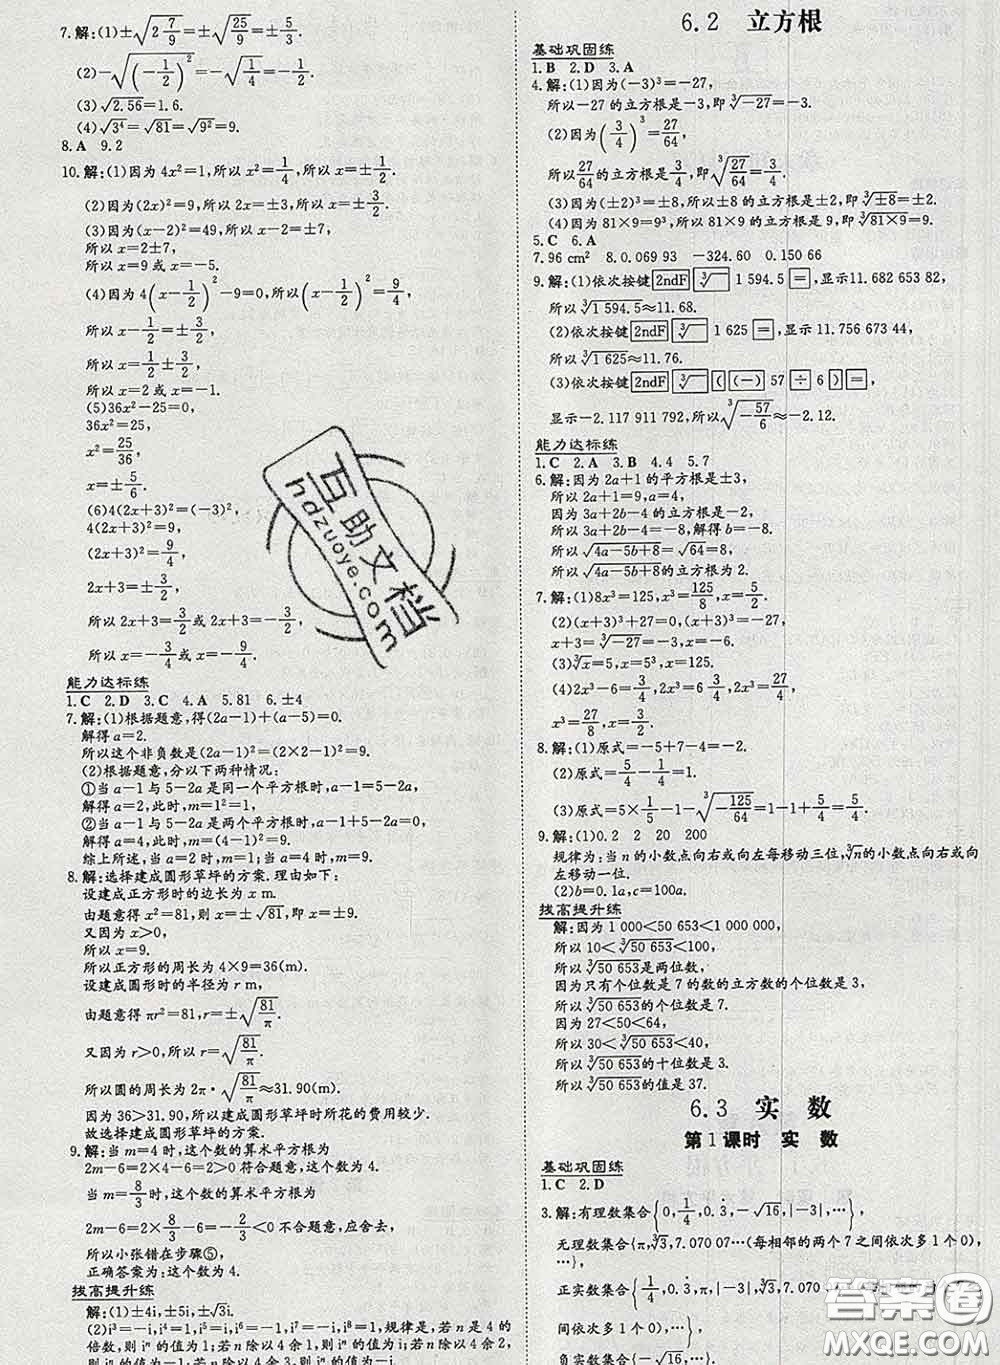 7.解:(1)±√(2 7/9)=±√(25/9)=±5/3.
(2)-√((-1/2)²)=-√(1/4)=-1/2.
(3)√2.56=1.6.
(4)√3⁴=√81=√9²=9.
8.A 9.2
10.解:(1)因为4x²=1,所以x²=1/4,所以x=±1/2.
(2)因为(2x)²=9,所以2x=±3,所以x=±3/2.
(3)因为(x-2)²=49,所以x-2=±7,
所以x=2±7,
所以x=9或x=-5.
(4)因为4(x-1/2)²-9=0,所以(x-1/2)²=9/4,
所以x-1/2=±3/2,
所以x=1/2±3/2,
所以x=2或x=-1.
(5)36x²-25=0,
36x²=25,
x²=25/36,
x=±5/6.
(6)4(2x+3)²=(-3)²,
4(2x+3)²=9,
(2x+3)²=9/4,
2x+3=±3/2,
所以2x+3=3/2或2x+3=-3/2,
所以x=-3/4或x=-9/4.
能力达标练
1.C 2.D 3.C 4.A 5.81 6.±4
7.解:(1)根据题意,得(2a-1)+(a-5)=0.
解得a=2.
所以这个非负数是(2a-1)²=(2×2-1)²=9.
(2)根据题意,分以下两种情况:
①当a-1与5-2a是同一个平方根时,
解得a=2,此时,m=1²=1;
②当a-1与5-2a是两个平方根时,
解得a=4,此时,m=(4-1)²=9.
综上所述,当a=2时,m=1;当a=4时,m=9.
8.解:选择建成圆形草坪的方案.理由如下:
设建成正方形时的边长为x m.
由题意得x²=81,则x=±√81,即x=±9.
又因为x>0,
所以x=9.
所以正方形的周长为4×9=36(m).
设建成圆形时的半径为r m,
由题意得πr²=81,r=±√(81/π).
又因为r>0,所以r=√(81/π).
所以圆的周长为2π·√(81/π)≈31.90(m).
因为36>31.90,所以建成圆形草坪时所花的费用较少.
故选择建成圆形草坪的方案.
9.解:当m=4时,这个数的算术平方根为
2m-6=2×4-6=2>0符合题意,这个数为2²=4.
当m=8/3时,这个数的算术平方根为
2m-6=2×8/3-6=-2/3<0不合题意,应舍去,
所以小张错在步骤⑤,
正确答案为:这个数为4.
拔高提升练
解:(1)±4i,±5i,±√3i.
(2)i³=-i,i⁴=1,i⁵=i,i⁶=-1,i⁷=-i,i⁸=1,规律是,若n是4的
倍数,则iⁿ的值为1;若n除以4余1,则iⁿ的值为i;若n除以4余2,
则iⁿ的值为-1;若n除以4余3,则iⁿ的值为-i.
6.2 立方根
基础巩固练
1.B 2.D 3.A
4.解:(1)因为(-3)³=-27,
所以-27的立方根是-3,即∛-27=-3.
(2)因为(3/4)³=27/64,
所以27/64的立方根是3/4,即∛(27/64)=3/4.
(3)因为(±2)³=±8,所以±8的立方根是±2,即∛±8=±2.
(4)因为81×9=9³,所以81×9的立方根是9,即∛81×9=9.
5.C 6.A
7.96 cm² 8.0.069 93 -324.60 0.150 66
9.解:(1)依次按键 2ndF ∛ 1 594.5 =,显示11.682 653 82,
所以∛1 594.5≈11.68.
(2)依次按键 2ndF ∛ 1 625 =,显示11.756 673 44,
所以∛1 625≈11.76.
(3)依次按键 2ndF ∛ ( (-) 57 ÷ 6 ) =,
显示-2.117 911 792,所以∛(-57/6)≈-2.12.
能力达标练
1.C 2.A 3.B 4.4 5.7
6.解:因为2a+1的平方根是±3,
所以2a+1=9,a=4,
因为3a+2b-4的立方根是-2,
所以3a+2b-4=-8,解得b=-8.
所以√(4a-5b+8)=√64=8,
所以√(4a-5b+8)的立方根为2.
7.解:(1)8x³=125,x³=125/8,x=5/2.
(2)(x+3)³+27=0,(x+3)³=-27,
x+3=∛-27=-3,x=-6.
(3)∛x=5,x=5³,x=125.
(4)2x³-6=3/4,2x³=6 3/4,2x³=27/4,
x³=27/8,x=3/2.
8.解:(1)原式=-5+7-4=-2.
(2)原式=5/4-1/4=1.
(3)原式=5×1/5-1-∛(-125/64)=1-1+5/4=5/4.
9.解:(1)0.2 2 20 200
规律为:当n的小数点向右或向左每移动三位,∛n的小数点向右或向
左移动一位.
(2)b=0.1a,c=100a.
拔高提升练
解:因为1 000<50 653<1 000 000,
所以10<∛50 653<100,
所以∛50 653是两位数,
因为只有个位数是7的数的立方数的个位数是3,
所以∛50 653的个位数是7.
因为27<50<64,
所以30<∛50 653<40,
所以∛50 653的十位数是3.
所以∛50 653的值是37.
6.3 实 数
第1课时 实 数
基础巩固练
1.C 2.D
3.解:有理数集合{0,1/4,0.3̇,-√16,|-3|,…},
无理数集合{π,∛3,7.070 07…(每相邻的两个7之间依次多1个0),
…},
正实数集合{1/4,0.3̇,π,|-3|,∛3,7.070
间依次多1个0),…},
负实数集合{-√16,…}.
互助文档
hdzuoye.com
答案圈
MXQE.COM